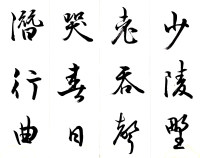 少陵野
老吞聲
哭春日
潛行曲